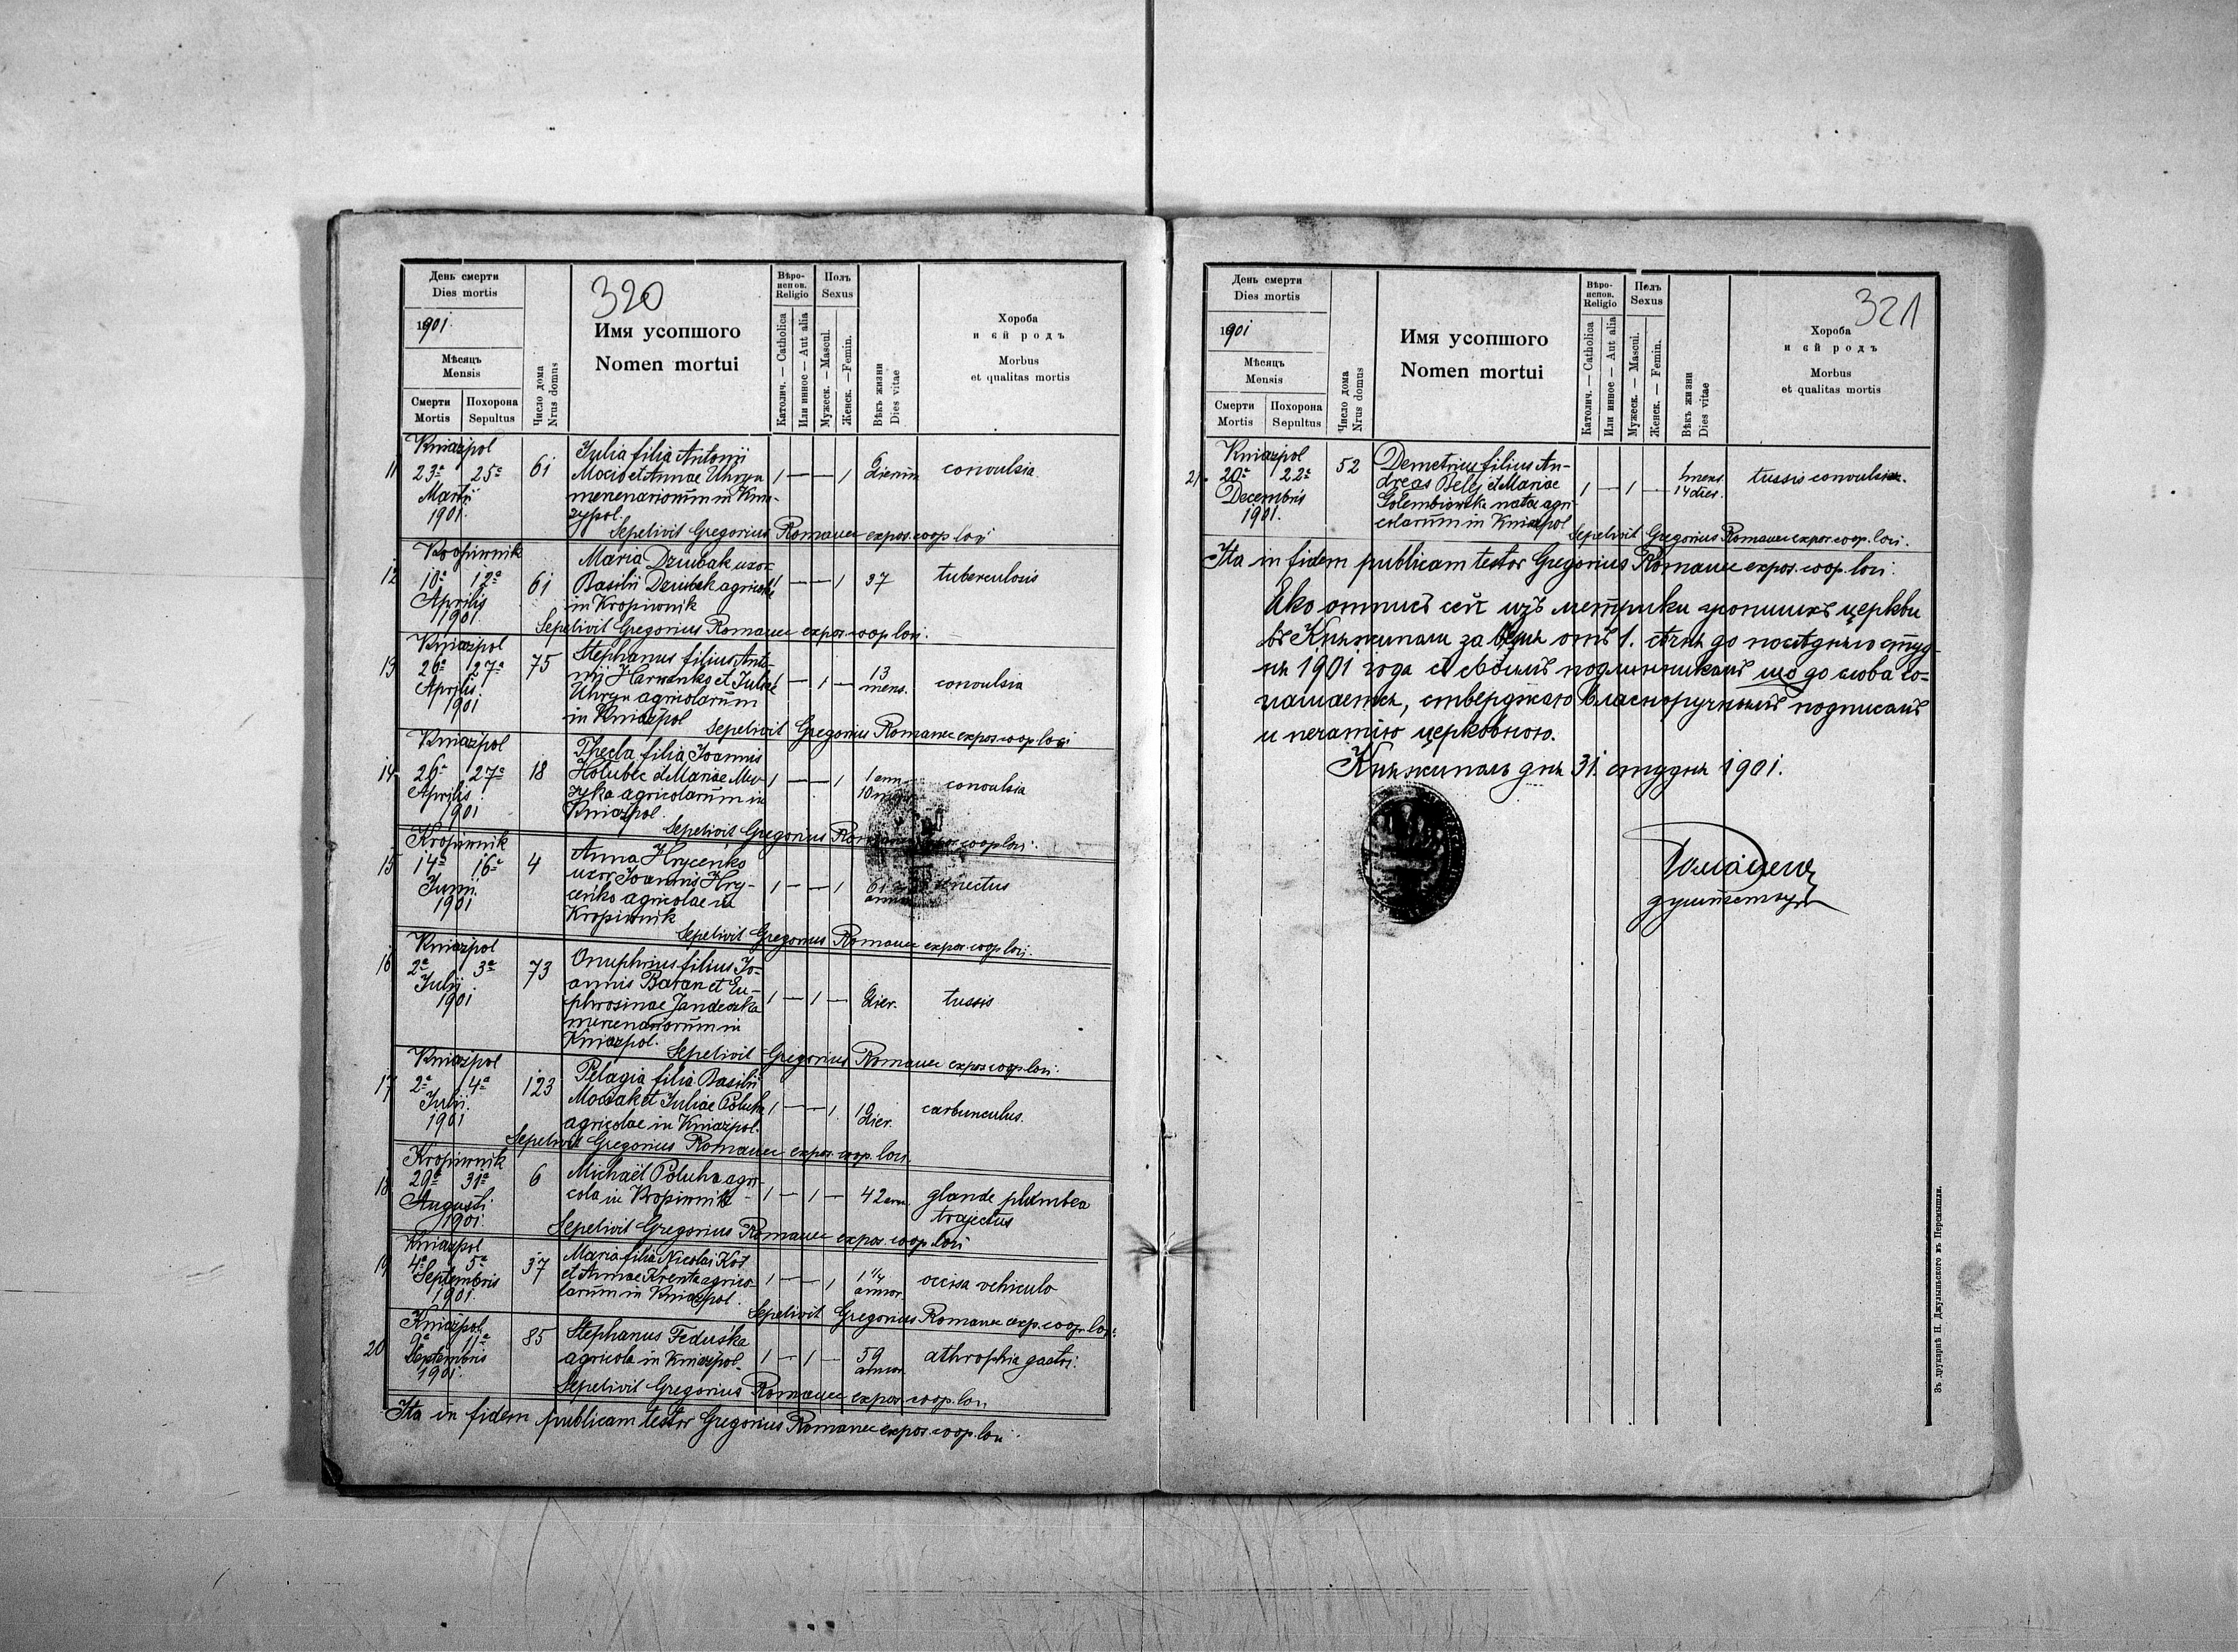 320
День смерти
Dies mortis
1901.
Мѣсяцъ
Mensis
Смерти
Mortis
Похорона
Sepultus
Число дома
Nrus domus
Имя усопшого
Nomen mortui
Вѣро-
испов.
Religio
Католич. — Catholica
Или инное — Aut alia
Полъ
Sexus
Мужеск. — Mascul.
Женск. — Femin.
Вѣкъ жизни
Dies vitae
Хороба
и єй родъ
Morbus
et qualitas mortis
Kniażpol
11 23ª 25ª 61 Julia filia Antonii
Mocio et Annae Uhryn 1 — — 1 convulsia.
Martii mercenariorum in Knia-
1901. żypol.
Sepelivit Gregorius Romanec expos. coop. loci
Kropiwnik
12 10ª 12ª 61 Maria Dziubak uxor
Basilii Dziubak agricolae 1 — — 1 37 tuberculosis
Aprilis in Kropiwnik
1901
Sepelivit Gregorius Romanec expos. coop. loci.
Kniażpol
13 26ª 27ª 75 Stephanus filius Anto-
nij Harnenko et Juliae 1 — 1 — 13 mens. convulsia
Aprilis Uhryn agricolarum
1901 in Kniażpol
Sepelivit Gregorius Romanec expos coop loci
Kniażpol
14 26ª 27ª 18 Thecla filia Joannis
Holubec et Mariae Mu- 1 — — 1 1 ann. convulsia
Aprilis zyka agricolarum in 10
1901 Kniażpol.
Sepelivit Gregorius Romanec expos. coop loci.
Kropiwnik
15 14ª 16ª 4 Anna Hrycenko
uxor Joannis Hry- 1 — — 1 61 senectus
Junii cenko agricolae in annor.
1901 Kropiwnik
Sepelivit Gregorius Romanec expos. coop loci.
Kniażpol
16 2ª 3ª 73 Onuphrius filius Jo-
Julij annis Baran et Eu-
1901 phrosinae Jandeczka 1 — 1 — 2 dier. tussis
mercenariorum in
Kniażpol.
Sepelivit Gregorius Romanec expos coop loci.
Kniażpol
17 2ª 4ª 123 Pelagia filia Basilii
Julii. Mociak et Juliae Poluha 1 — — 1. dier. carbunculus.
1901 agricolae in Kniażpol.
Sepelivit Gregorius Romanec expos. coop. loci.
Kropiwnik
18 29ª 31ª 6 Michaël Poluha agri-
Augusti cola in Kropiwnik 1 — 1 — 42 ann glande plumbea
1901. trajectus
Sepelivit Gregorius Romanec expos. coop loci
Kniażpol
19 4ª 5ª 37 Maria filia Nicolai Kot
Septembris et Annae Krenta agrico- 1 — — 1 1 1/4 occisa vehiculo
1901. larum in Kniażpol. annor.
Sepelivit Gregorius Romanec exp. coop. loci.
Kniażpol.
20 9ª 11ª 85 Stephanus Feduska
Septembris agricola in Kniażpol. 1 — 1 — 59 athrophia gastri.
1901. annor.
Sepelivit Gregorius Romanec expos. coop. loci
Ita in fidem publicam testor Gregorius Romanec expos. coop. loci.
321
День смерти
Dies mortis
1901
Мѣсяцъ
Mensis
Смерти
Mortis
Похорона
Sepultus
Число дома
Nrus domus
Имя усопшого
Nomen mortui
Вѣро-
испов.
Religio
Католич. — Catholica
Или инное — Aut alia
Полъ
Sexus
Мужеск. — Mascul.
Женск. — Femin.
Вѣкъ жизни
Dies vitae
Хороба
и єй родъ
Morbus
et qualitas mortis
Kniażpol
21. 20ª 22ª 52 Demetrius filius An-
Decembris dreas Belej et Mariae 1 — 1 — 1 mens. tussis convulsiva.
1901. Golembiowska natae agri- 14 dies.
colarum in Kniażpol
Sepelivit Gregorius Romanec expos. coop. loci.
Ita in fidem publicam testor Gregorius Romanec expos. coop. loci.
Яко отписъ сей изъ метрики усопшихъ церкви
въ Княжиполи за время отъ 1. сѣчня до послѣднього студ-
ня 1901 года съ своимъ подлинникомъ що до слова со-
глашаєтся, стверджаю власноручнымъ подписомъ
и печатію церковною.
Княжиполь дня 31. студня 1901.
Романец
душпастырь
Зъ друкарнѣ Н. Джулыньского въ Перемышли.